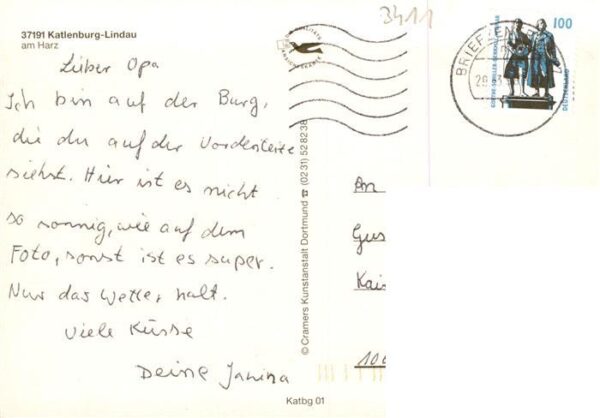 37191 Katlenburg-Lindau
am Harz
Lieber Opa
Ich bin auf der Burg,
die du auf der Vorderseite
siehst. Hier ist es nicht
so sonnig, wie auf dem
Foto, sonst ist es super.
Nur das Wetter halt.
Viele Küsse
Deine Janina
© Cramers Kunstanstalt Dortmund ☎ (0231) 528238
Katbg 01
3411
BRIEFZEN
100
DEUTSCHLAND
An
Gus
Kais